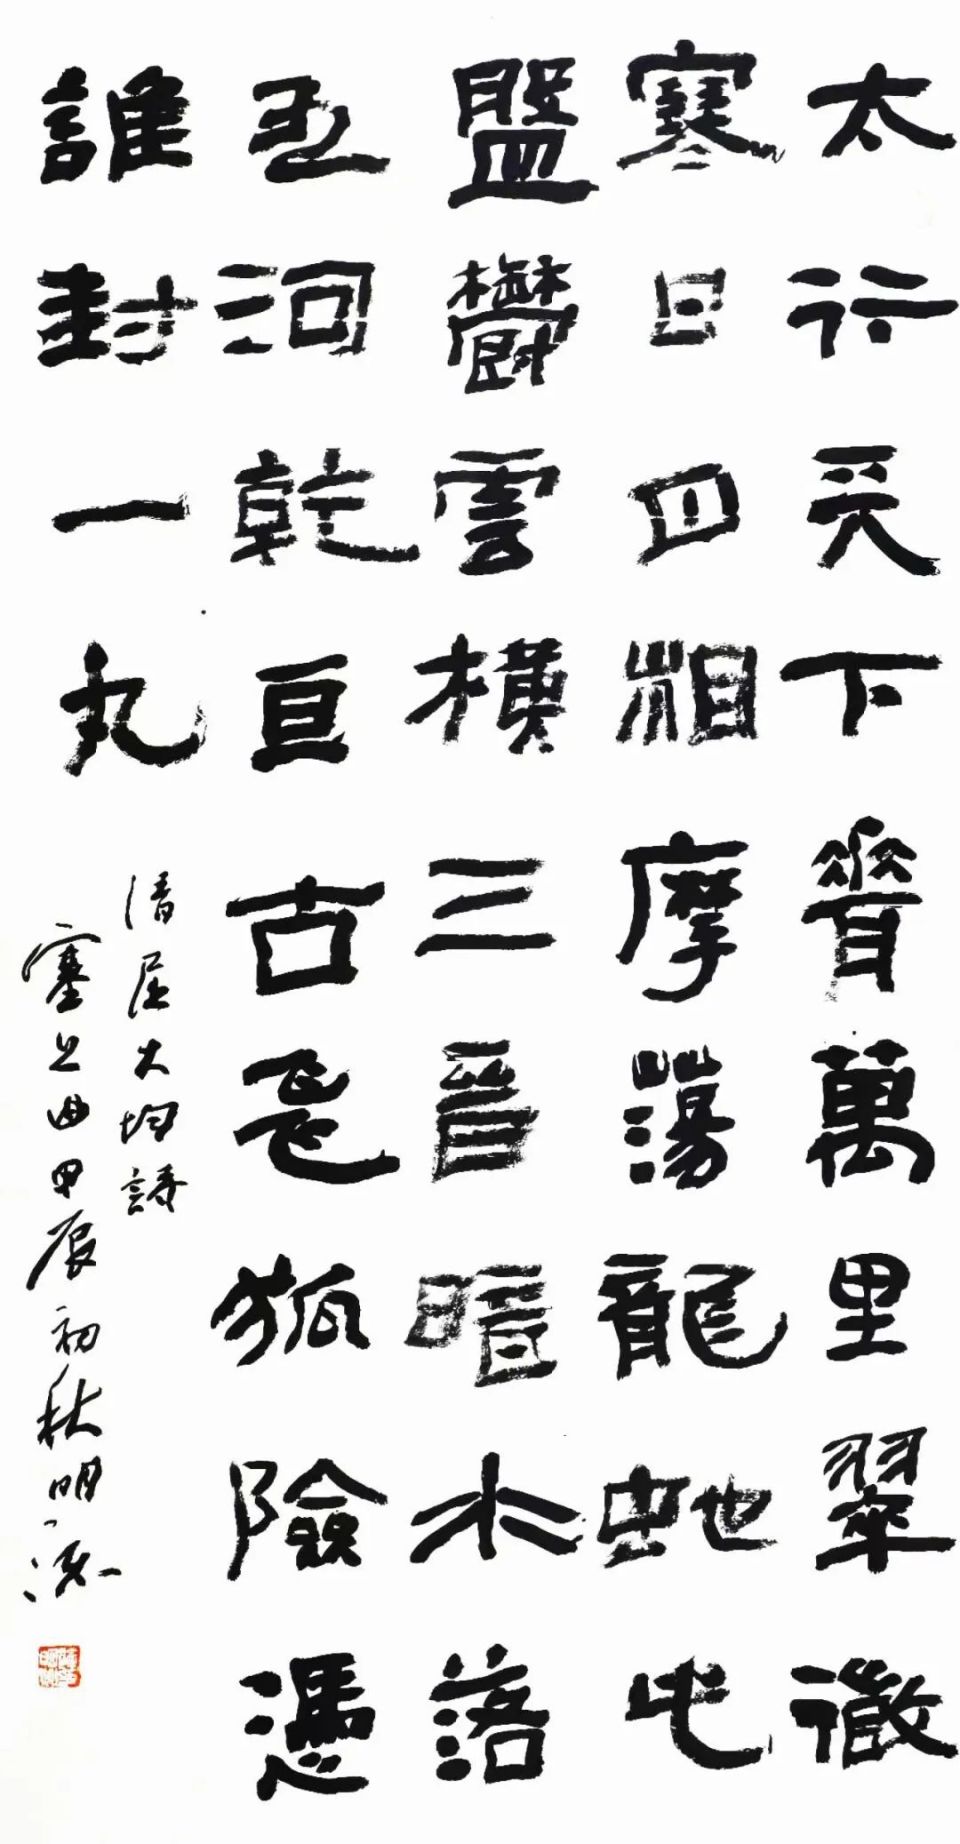 太行天下脊萬里翠微
寒日月相摩蕩龍蛇此
盤鬱雲橫三晉暗水落
五河乾亘古飛狐險憑
誰封一丸
清屈大均詩
塞上曲甲辰初秋明